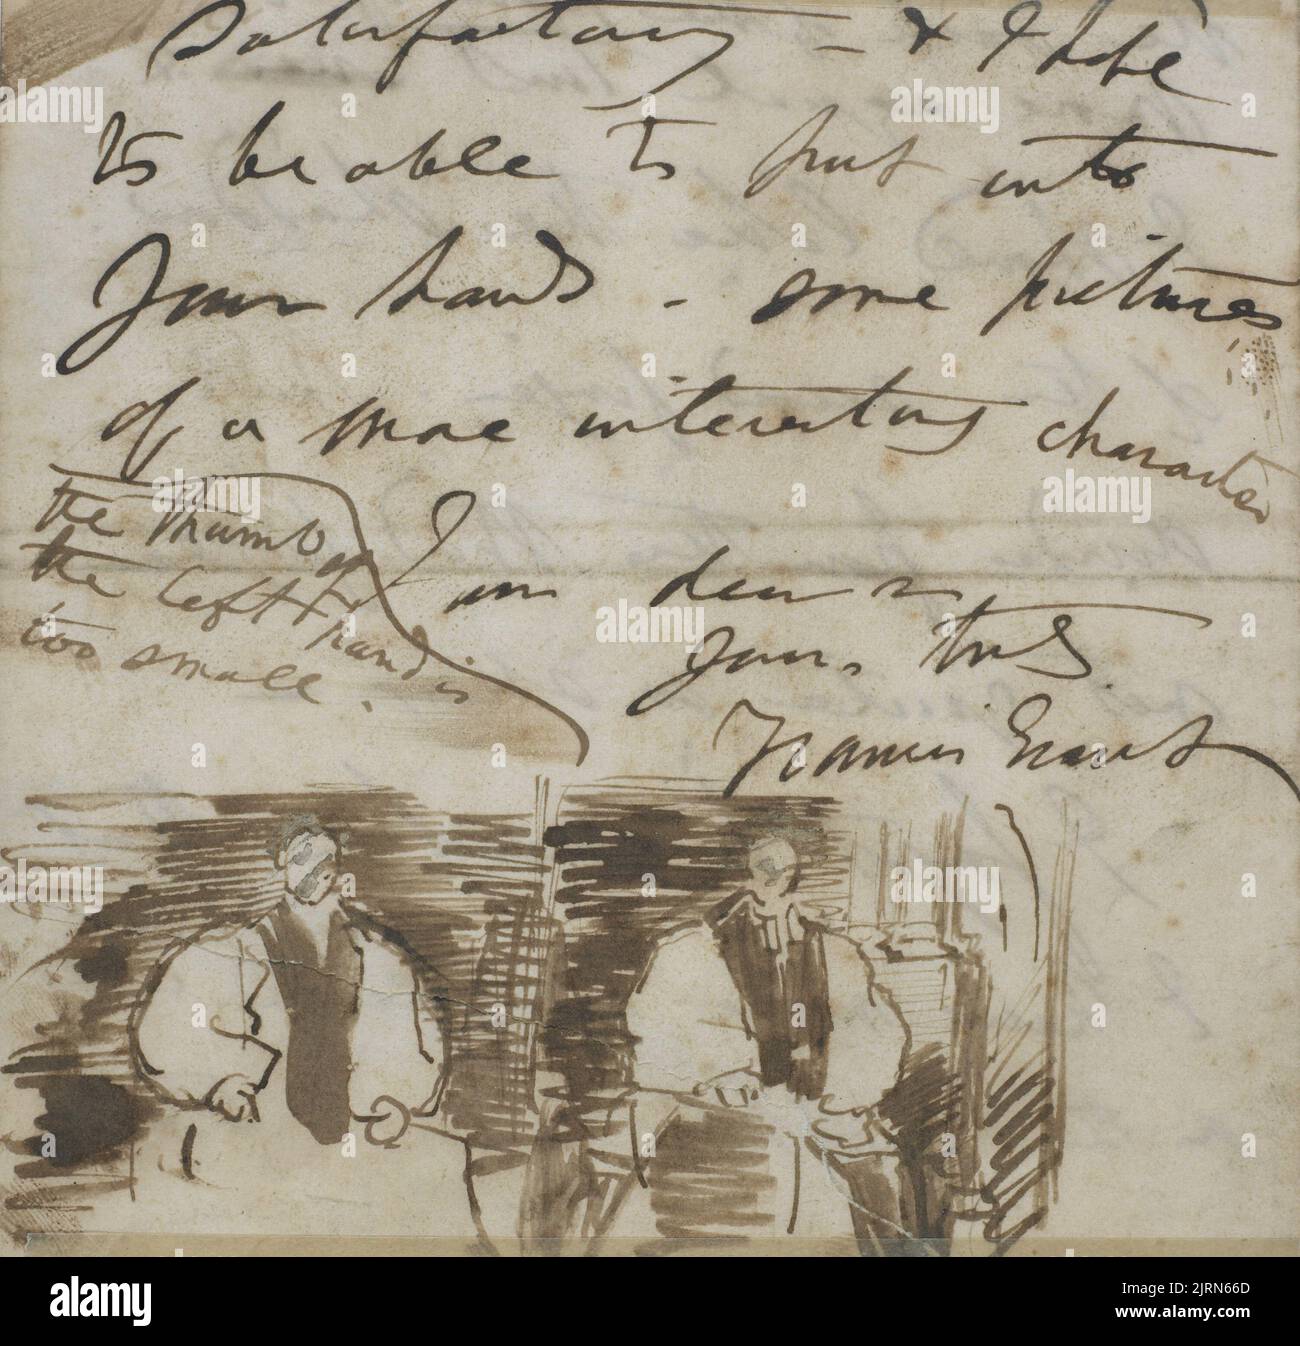 Satisfactory – & I hope
to be able to put into
your hands – some pictures
of a more interesting character
I am dear Sir
yours truly
Francis Grant
the thumb of
the left hand is
too small.
alamy
Image ID: 2JRN66D
www.alamy.com